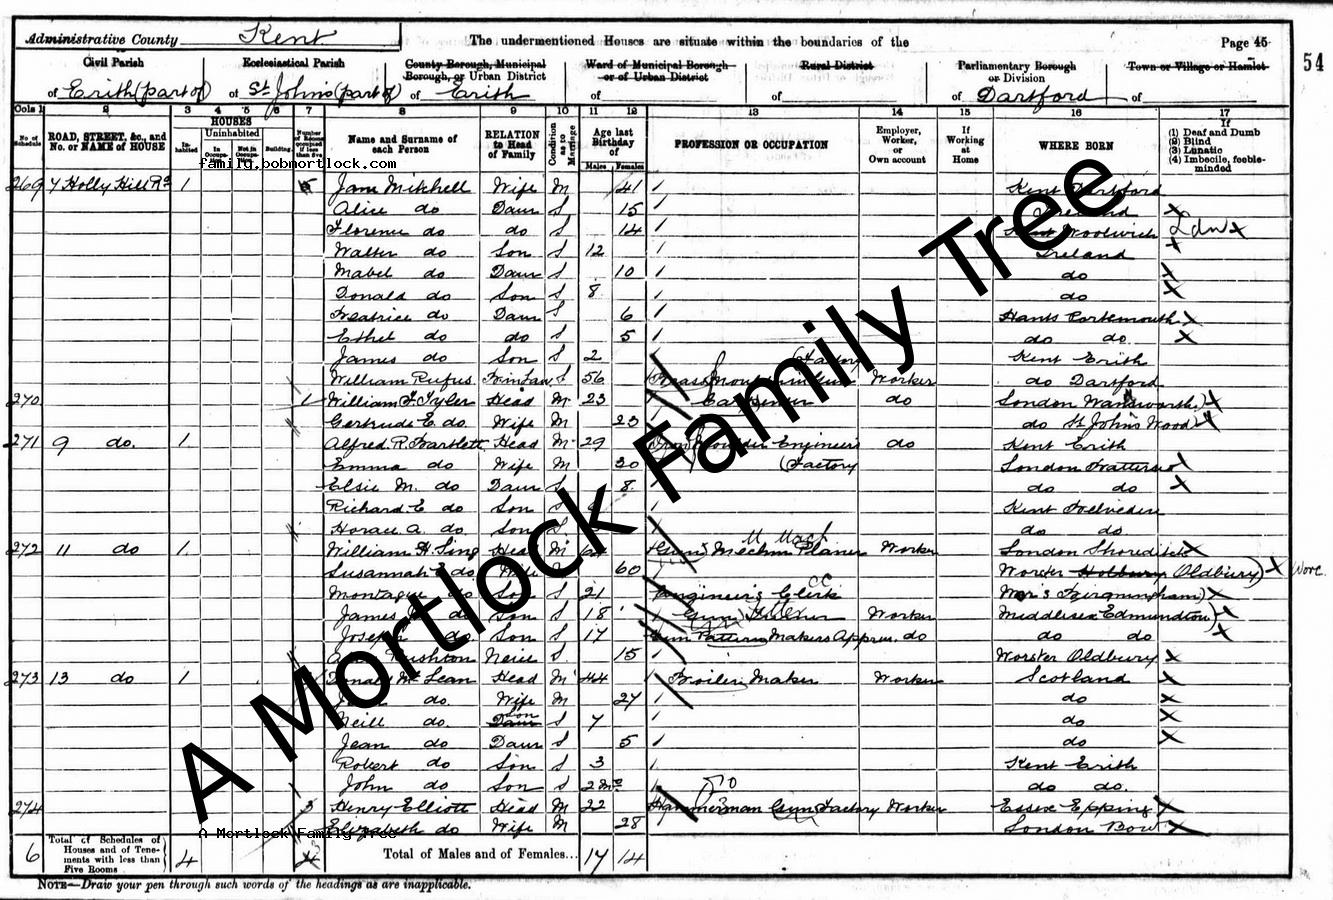 Administrative County Kent
The undermentioned Houses are situate within the boundaries of the
Page 45
54
Civil Parish
Ecclesiastical Parish
County Borough, Municipal Borough, or Urban District
Ward of Municipal Borough or of Urban District
Rural District
Parliamentary Borough or Division
Town or Village or Hamlet
of Erith (part of) of St Johns (part of) of Erith of of of Dartford of
Cols 1 2 3 4 5 6 7 8 9 10 11 12 13 14 15 16 17
No. of Schedule
ROAD, STREET, &c., and No. or NAME of HOUSE
HOUSES
Inhabited
Uninhabited
In Occupation
Not in Occupation
Building
Number of Rooms occupied if less than five
Name and Surname of each Person
RELATION to Head of Family
Condition as to Marriage
Age last Birthday of
Males Females
PROFESSION OR OCCUPATION
Employer, Worker, or Own account
If Working at Home
WHERE BORN
(1) Deaf and Dumb
(2) Blind
(3) Lunatic
(4) Imbecile, feeble-minded
family.bobmortlock.com
269 7 Holly Hill Rd 1 Jane Mitchell Wife M 41 Kent Dartford
Alice do Daur S 15 Ireland
Florence do do S 14 Kent Woolwich
Walter do Son S 12 Ireland
Mabel do Daur S 10 do
Donald do Son S 8 do
Beatrice do Daur S 6 Hants Portsmouth
Ethel do do S 5 do do
James do Son S 2 Kent Erith
William Rufus S 56 (Factory Worker do Dartford
270 William F. Tyler Head M 23 do London Wandsworth
Gertrude E. do Wife M 23 do St Johns Wood
271 9 do. 1 Alfred R. Bartlett Head M 29 Engineers do Kent Erith
Emma do Wife M 30 (Factory London Battersea
Elsie M. do Daur S 8 do do
Richard E do Son S Kent Belvedere
Horace A. do Son S do do
272 11 do 1 William H. Head M Planer Worker London Shoreditch
Susannah E do Wife 60 Worster Holbury Oldbury) Worc.
Montague do Son S 21 Engineer's Clerk
James do Son S 18 Gun Worker Middlesex Edmundton)
Joseph do Son S 17 Gun Pattern Makers Appren. do do do
Rushton Neice S 15 Worster Oldbury
273 13 do 1 Donald McLean Head M 44 Boiler Maker Worker Scotland
do. Wife M 27 do
Neill do. Daur Son S 7 do
Jean do Daur S 5 do
Robert do Son S 3 Kent Erith
John do Son S 2 Mo do do.
274 3 Henry Elliott Head M 22 Hammerman Gun Factory Worker Essex Epping
Elizabeth do Wife M 28 London Bow
A Mortlock Family Tree
6 Total of Schedules of Houses and of Tenements with less than Five Rooms 4 Total of Males and of Females... 17 14
NOTE—Draw your pen through such words of the headings as are inapplicable.
A Mortlock Family Tree